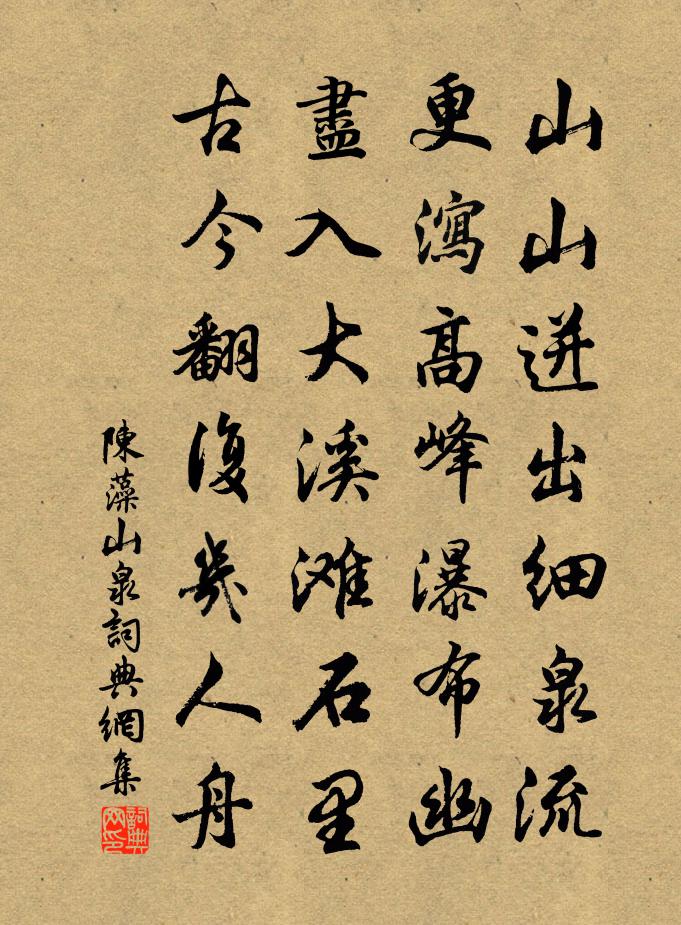 山山迸出细泉流
更瀉高峰瀑布幽
盡入大溪滩石里
古今翻復幾人舟
陳藻山泉詞典網集
詞典
网印